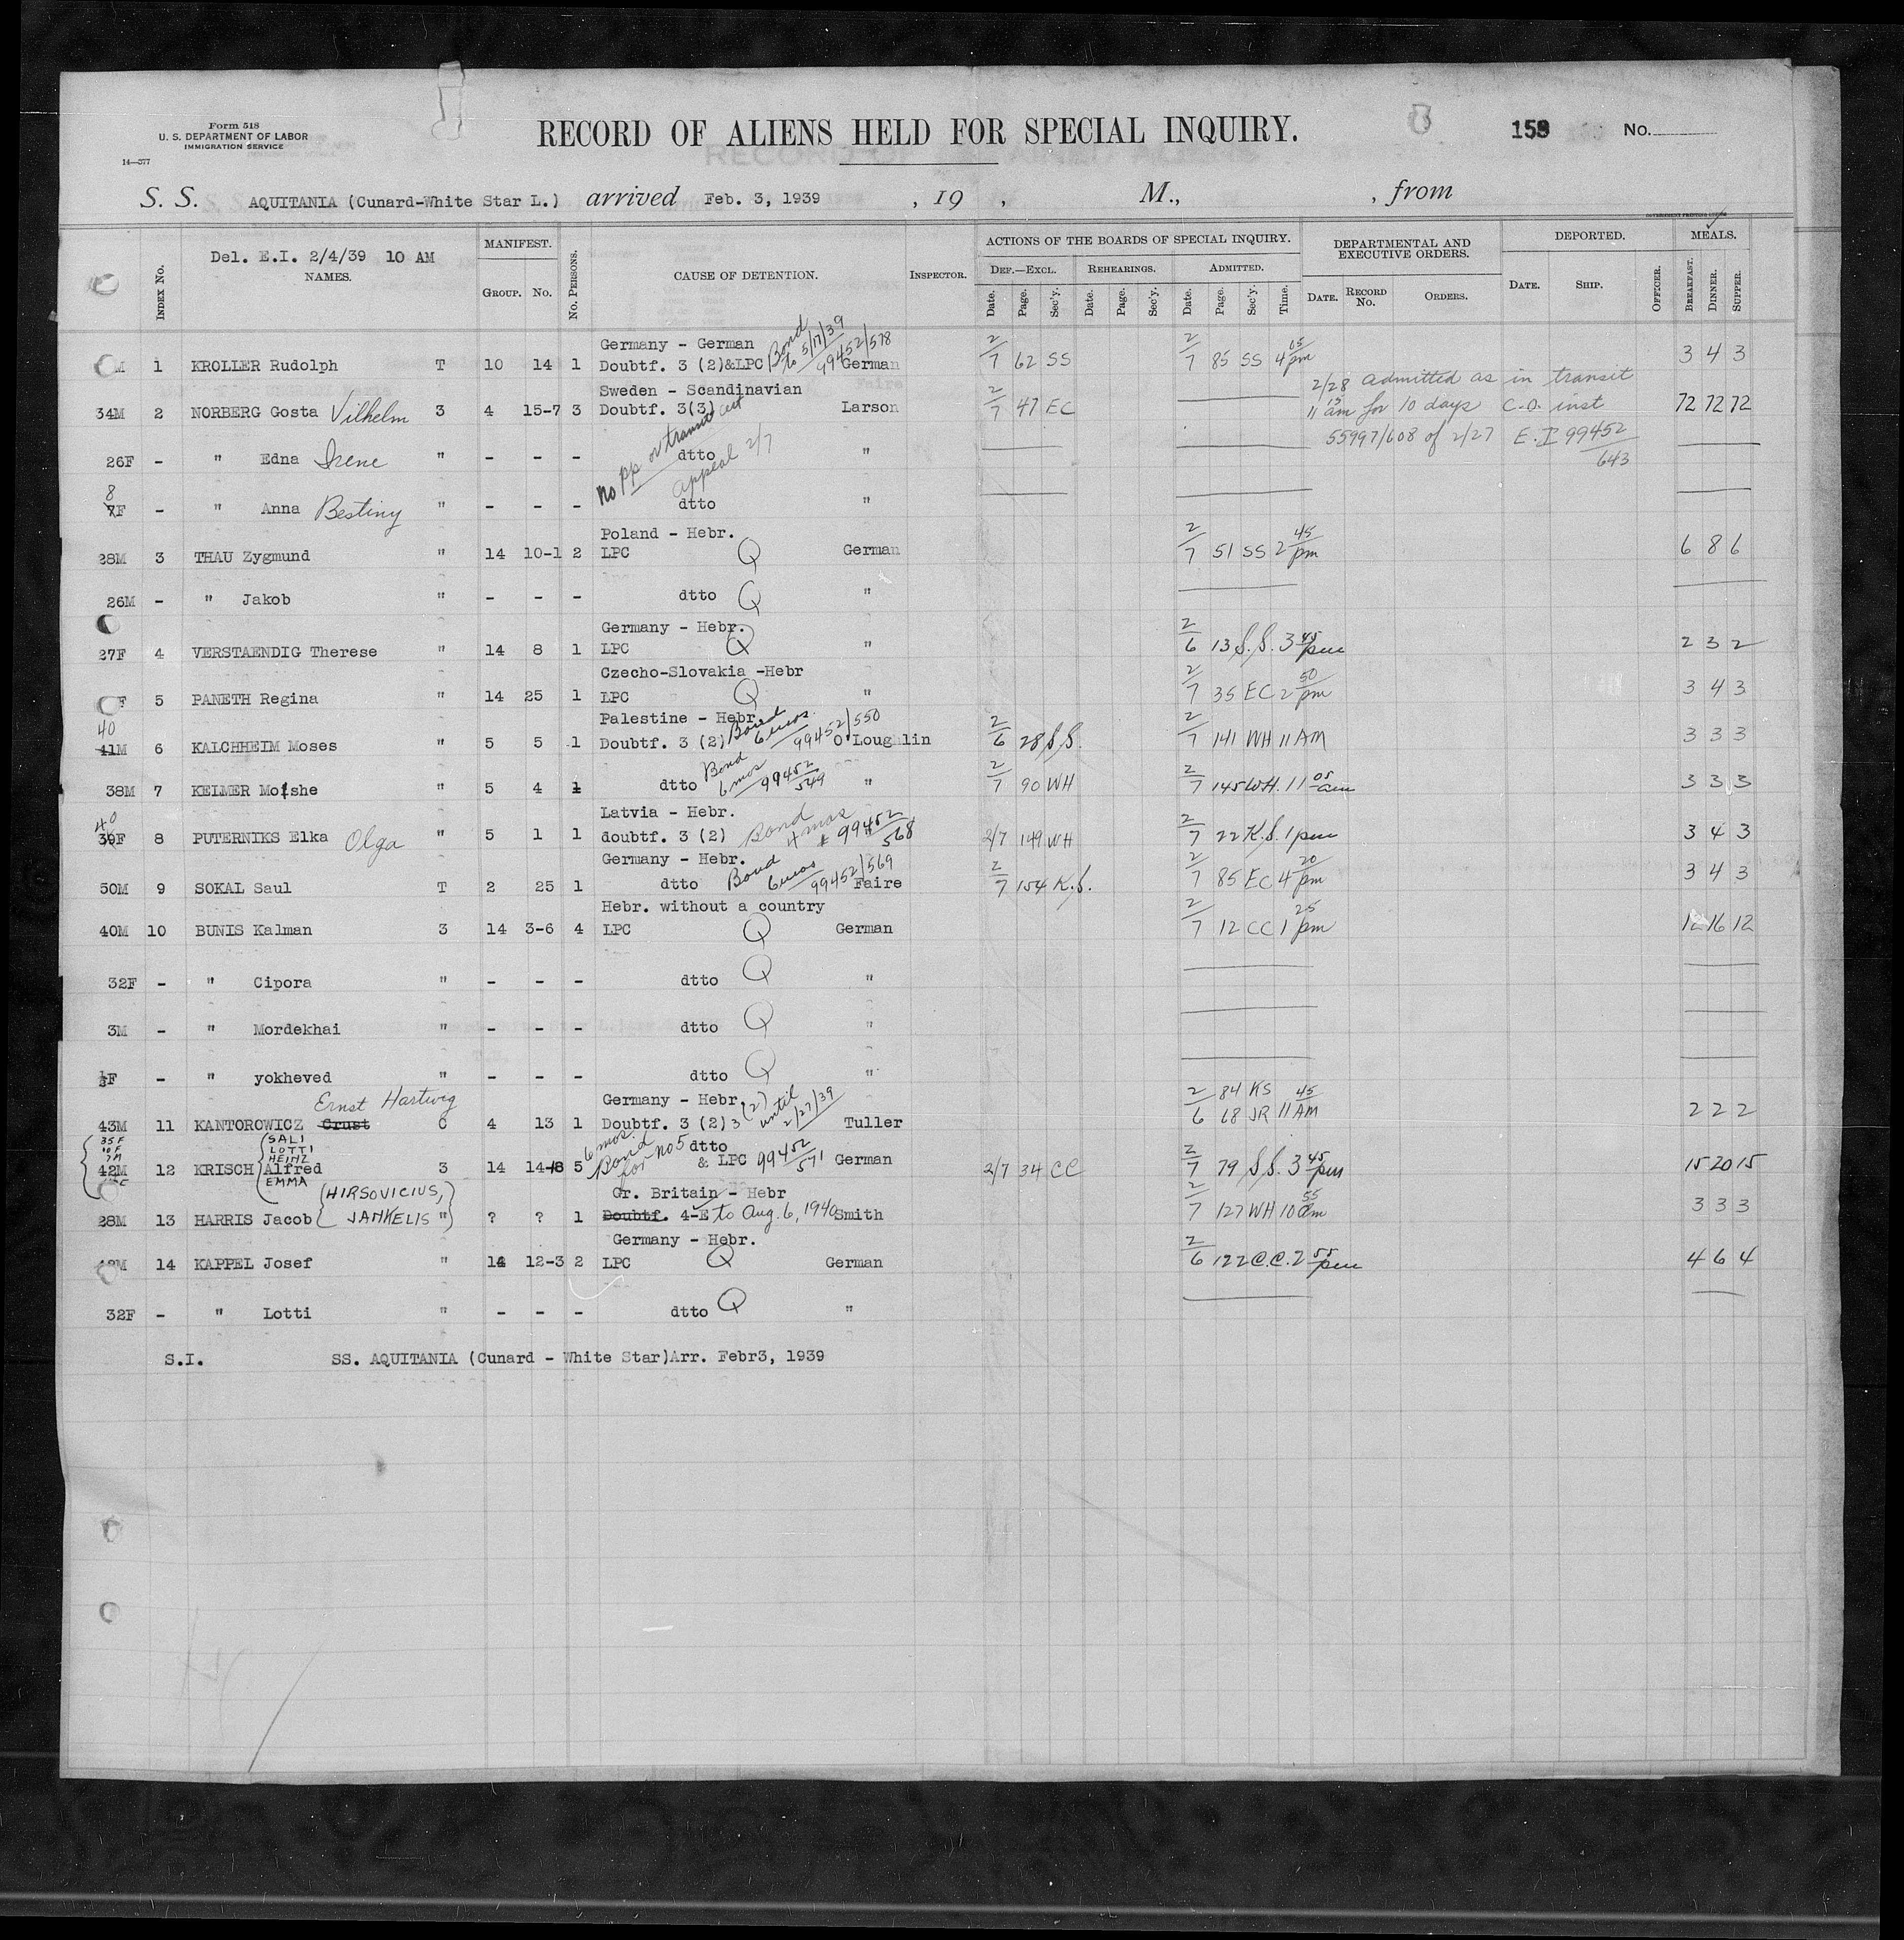 Form 518
U. S. DEPARTMENT OF LABOR
IMMIGRATION SERVICE
14—577
RECORD OF ALIENS HELD FOR SPECIAL INQUIRY.
159 No.
S. S. AQUITANIA (Cunard-White Star L.) arrived Feb. 3, 1939 , 19 , M., , from
Del. E.I. 2/4/39 10 AM
INDEX No. NAMES. MANIFEST. GROUP. No. No. PERSONS. CAUSE OF DETENTION. INSPECTOR. ACTIONS OF THE BOARDS OF SPECIAL INQUIRY. DEF.—EXCL. REHEARINGS. ADMITTED. DEPARTMENTAL AND EXECUTIVE ORDERS. DEPORTED. MEALS.
Date. Page. Sec'y. Date. Page. Sec'y. Date. Page. Sec'y. Time. DATE. RECORD No. ORDERS. DATE. SHIP. OFFICER. BREAKFAST. DINNER. SUPPER.
Germany - German Bond to 5/17/39 99452/578
M 1 KROLLER Rudolph T 10 14 1 Doubtf. 3 (2)&LPC German 2/7 62 SS 2/7 85 SS 4 05 pm 3 4 3
Sweden - Scandinavian 2/28 admitted as in transit
34M 2 NORBERG Gosta Vilhelm 3 4 15-7 3 Doubtf. 3(3) Larson 2/7 47 EC 11 15 am for 10 days C.O. inst 72 72 72
55997/608 of 2/27 E.I 99452/643
26F - " Edna Irene " - - - dtto "
no pp or transit cert
appeal 2/7
8
7F - " Anna Bestiny " - - - dtto "
Poland - Hebr.
28M 3 THAU Zygmund " 14 10-1 2 LPC Q German 2/7 51 SS 2 45 pm 6 8 6
26M - " Jakob " - - - dtto Q "
Germany - Hebr.
27F 4 VERSTAENDIG Therese " 14 8 1 LPC Q " 2/6 13 S.S. 3 45 pm 2 3 2
Czecho-Slovakia -Hebr
F 5 PANETH Regina " 14 25 1 LPC Q " 2/7 35 EC 2 50 pm 3 4 3
40 Palestine - Hebr. Bond 6 mos. 99452/550
41M 6 KALCHHEIM Moses " 5 5 1 Doubtf. 3 (2) O'Loughlin 2/6 28 S.S. 2/7 141 WH 11 AM 3 3 3
38M 7 KELMER Moishe " 5 4 1 dtto Bond 6 mos 99452/549 " 2/7 90 WH 2/7 145 WH. 11 05 am 3 3 3
40 Latvia - Hebr.
39F 8 PUTERNIKS Elka Olga " 5 1 1 doubtf. 3 (2) Bond 4 mos # 99452/568 2/7 149 WH 2/7 22 K.S. 1 pm 3 4 3
Germany - Hebr.
50M 9 SOKAL Saul T 2 25 1 dtto Bond 6 mos 99452/569 Faire 2/7 154 K.S. 2/7 85 EC 4 20 pm 3 4 3
Hebr. without a country
40M 10 BUNIS Kalman 3 14 3-6 4 LPC Q German 2/7 12 CC 1 25 pm 12 16 12
32F - " Cipora " - - - dtto Q "
3M - " Mordekhai " - - - dtto Q "
F - " yokheved " - - - dtto Q "
Ernst Hartwig Germany - Hebr. 2/6 84 KS
43M 11 KANTOROWICZ Crust C 4 13 1 Doubtf. 3 (2) 3 (2) until 2/27/39 Tuller 68 JR 11 45 AM 2 2 2
35F SALI
10F LOTTI
7M HEINZ dtto
42M 12 KRISCH Alfred 3 14 14-18 5 & LPC 6 mos. Bond for no 5 99452/571 German 2/7 34 CC 2/7 79 S.S. 3 45 pm 15 20 15
EMMA
(HIRSOVICIUS, Gr. Britain - Hebr
28M 13 HARRIS Jacob JANKELIS " ) ? ? 1 Doubtf. 4-E to Aug. 6, 1940 Smith 2/7 127 WH 10 55 am 3 3 3
Germany - Hebr.
M 14 KAPPEL Josef " 14 12-3 2 LPC Q German 2/6 122 C.C. 2 55 pm 4 6 4
32F - " Lotti " - - - dtto Q "
S.I. SS. AQUITANIA (Cunard - White Star)Arr. Febr3, 1939